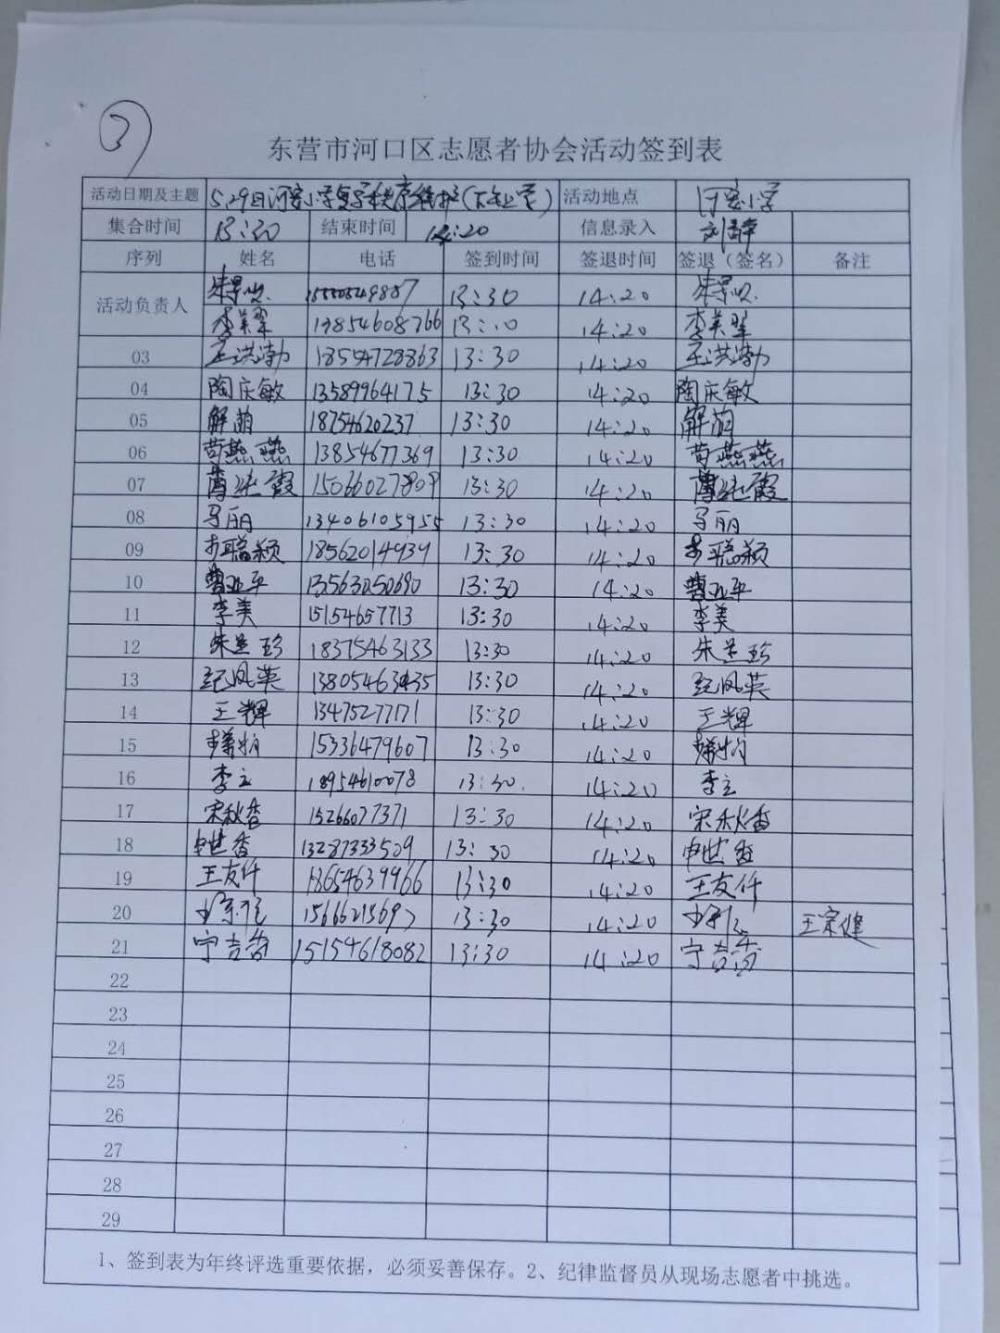 3
东营市河口区志愿者协会活动签到表
活动日期及主题 5.29日河安小学复学秩序维护(下午上学) 活动地点 河安小学
集合时间 13:30 结束时间 14:20 信息录入 刘静
序列 姓名 电话 签到时间 签退时间 签退（签名） 备注
活动负责人 13:30 14:20
李美翠 14:20 李美翠
03 王洪渤 18554728863 13:30 14:20 王洪渤
04 陶庆敏 13589964175 13:30 14:20 陶庆敏
05 解萌 18754620237 13:30 14:20 解萌
06 苟燕燕 13854677369 13:30 14:20 苟燕燕
07 13:30 14:20
08 马丽 13406105955 13:30 14:20 马丽
09 步聪颖 18562014939 13:30 14:20 步聪颖
10 曹亚平 13563050690 13:30 14:20 曹亚平
11 李美 15154657713 13:30 14:20 李美
12 朱兰珍 18375463133 13:30 14:20 朱兰珍
13 纪凤英 13:30 14:20 纪凤英
14 王辉 13475277171 13:30 14:20 王辉
15 15336479607 13:30 14:20
16 李立 18954610078 13:30 14:20 李立
17 宋秋香 15266077371 13:30 14:20 宋秋香
18 申世香 13287333509 13:30 14:20 申世香
19 王友仟 18654639966 13:30 14:20 王友仟
20 15666215697 13:30 14:20 王宗健
21 宁吉香 15154618082 13:30 14:20 宁吉香
22
23
24
25
26
27
28
29
1、签到表为年终评选重要依据，必须妥善保存。2、纪律监督员从现场志愿者中挑选。